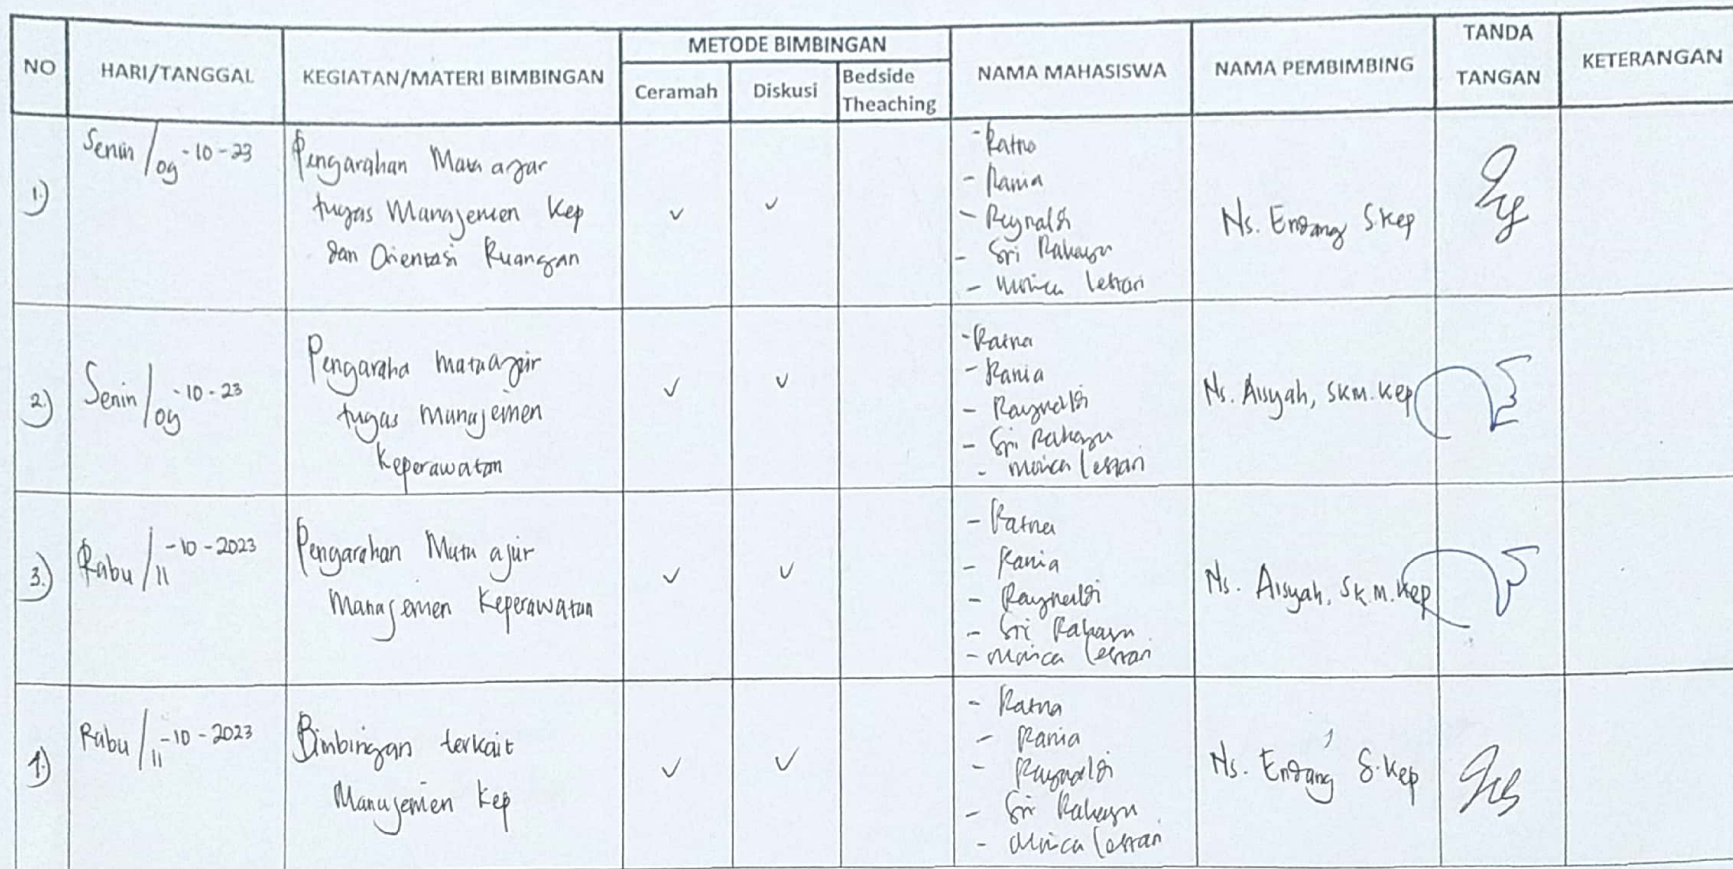 NO HARI/TANGGAL KEGIATAN/MATERI BIMBINGAN METODE BIMBINGAN NAMA MAHASISWA NAMA PEMBIMBING TANDA TANGAN KETERANGAN
Ceramah Diskusi Bedside Theaching
1.) Senin / 09 -10-23
Pengarahan Mata ajar
tugas Manajemen Kep
dan Orientasi Ruangan
✓ ✓
- Ratna
- Rania
- Reynaldi
- Sri Rahayu
- Monica lestari
Ns. Endang S.Kep
2.) Senin / 09 -10-23
Pengaraha mata ajar
tugas manajemen
keperawatan
✓ ✓
- Ratna
- Rania
- Raynaldi
- Sri Rahayu
- monica lestari
Ns. Aisyah, SKM. Kep
3.) Rabu / 11 -10-2023
Pengarahan Mata ajar
Manajemen Keperawatan
✓ ✓
- Ratna
- Rania
- Raynaldi
- Sri Rahayu
- monica lestari
Ns. Aisyah, SKM. Kep
Rabu / 11 -10-2023
Bimbingan terkait
Manajemen Kep
✓ ✓
- Ratna
- Rania
- Raynaldi
- Sri Rahayu
- Monica lestari
Ns. Endang S.Kep